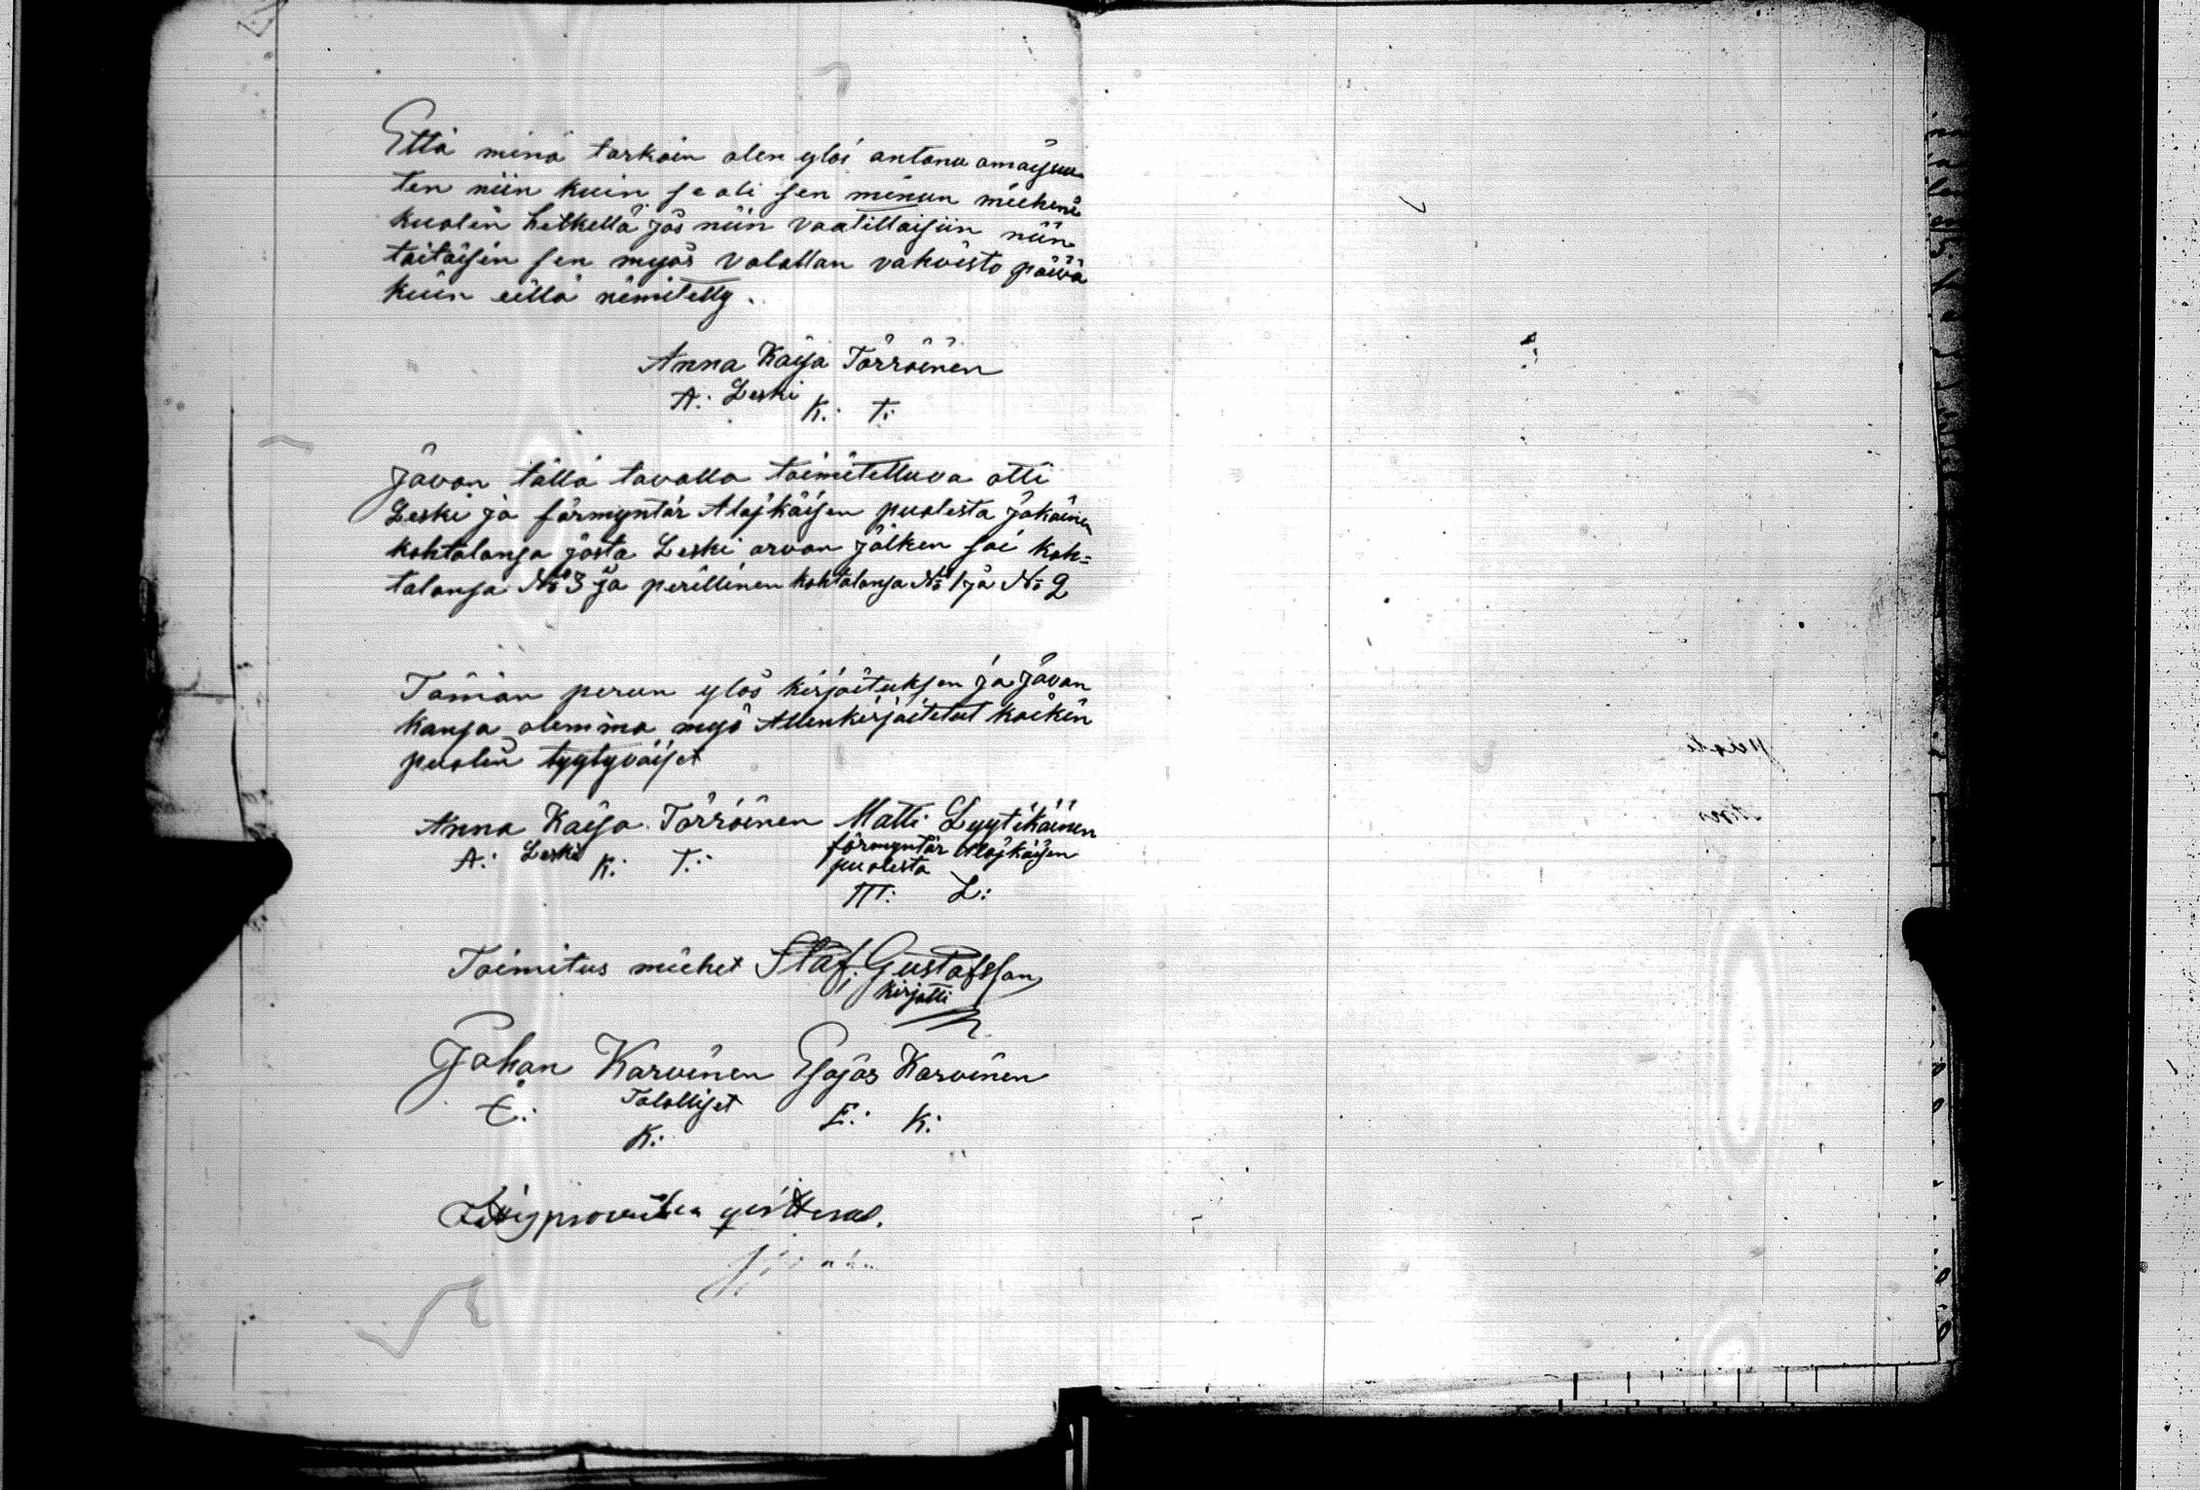 Että minä tarkoin olen ylös antanu omaisuu
ten niin kuin se oli sen minun mieheni
kuolin hetkellä jos niin vaatittaisiin niin
taitaisin sen myös valallan vahvisto päivä
kuin eillä nimitetty.
Anna Kaisa Törröinen
A: Leski K: T:
Jāvon tällä tavalla toimitettuva otti
Leski ja förmyntär Alajkäisen puolesta jokainen
kohtalonsa josta Leski arvan jälken sai koh=
talonsa No 3 ja perillinen kohtalonsa No 1 ja No 2
Tämän perun ylös kirjoituksen ja Jāvon
kansa olemma myö Allenkirjoitetut kaikin
puolin tyytyväiset
Anna Kaisa Törröinen
A: Leski K: T:
Matti Lyytikäinen
förmyntär Alajkäisen
puolesta
M: L:
Toimitus miehet Staf. Gustafsson
kirjotti
Johan Karvinen Esajas Karvinen
Talolliset
K: E: K:
qvitteras.